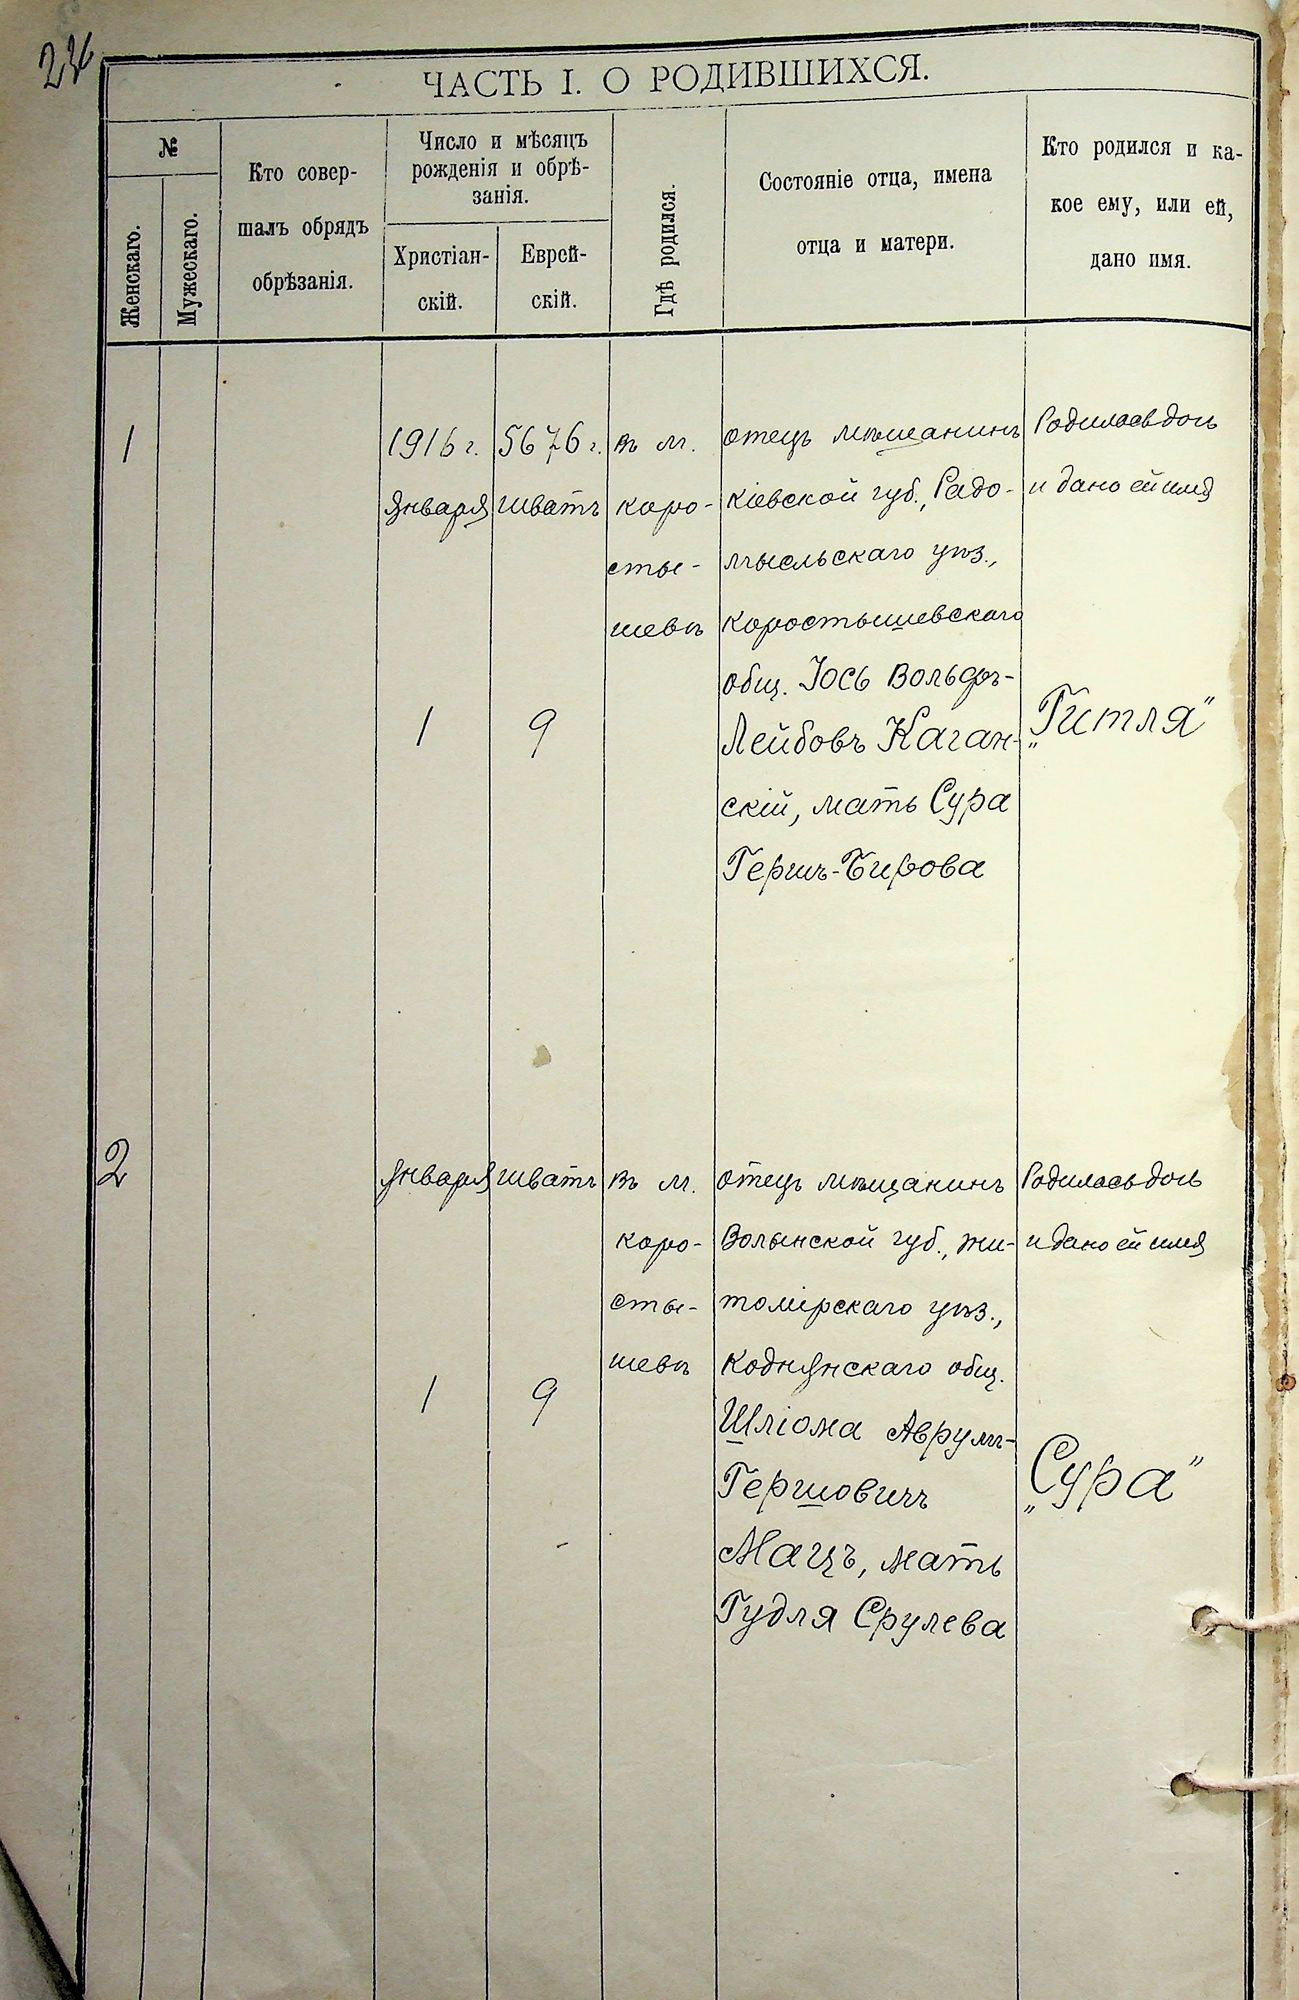 ЧАСТЬ I. О РОДИВШИХСЯ.
№
Женскаго.
Мужескаго.
Кто совер-
шалъ обрядъ
обрѣзанія.
Число и мѣсяцъ
рожденія и обрѣ-
занія.
Христіан-
скій.
Еврей-
скій.
Гдѣ родился.
Состояніе отца, имена
отца и матери.
Кто родился и ка-
кое ему, или ей,
дано имя.
1
1916 г.
Января
1
5676 г.
шватъ
9
въ м.
коро-
сты-
шевѣ
отецъ мѣщанинъ
кіевской губ., Радо-
мысльскаго уѣз.,
коростышевскаго
общ. Іось Вольфъ-
Лейбовъ Каган-
скій, мать Сура
Гершъ-Берова
Родилась дочь
и дано ей имя
„Гитля"
2
Января
1
шватъ
9
въ м.
коро-
сты-
шевѣ
отецъ мѣщанинъ
Волынской губ., жи-
томірскаго уѣз.,
коднянскаго общ.
Шліома Аврумъ-
Гершовичъ
Мацъ, мать
Гудля Срулева
Родилась дочь
и дано ей имя
„Сура"